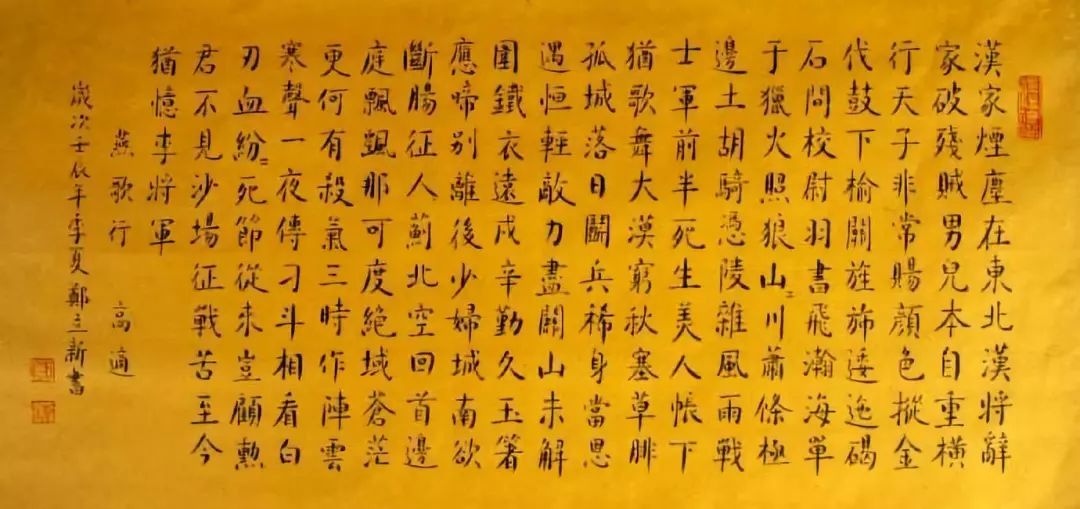 漢家煙塵在東北漢將辭
家破殘賊男兒本自重橫
行天子非常賜顏色摐金
代鼓下榆關旌旆逶迤碣
石間校尉羽書飛瀚海單
于獵火照狼山〻川蕭條極
邊土胡騎憑陵雜風雨戰
士軍前半死生美人帳下
猶歌舞大漠窮秋塞草腓
孤城落日鬭兵稀身當恩
遇恒輕敵力盡關山未解
圍鐵衣遠戍辛勤久玉箸
應啼別離後少婦城南欲
斷腸征人薊北空回首邊
庭飄颻那可度絕域蒼茫
更何有殺氣三時作陣雲
寒聲一夜傳刁斗相看白
刃血紛〻死節從來豈顧勳
君不見沙場征戰苦至今
猶憶李將軍
燕歌行 高適
歲次壬辰年季夏鄭立新書